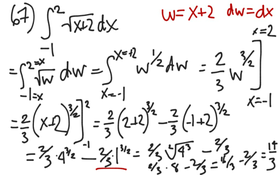 67) ∫_{-1}^{2} √(x+2) dx   w=x+2 dw=dx
= ∫_{-1=x}^{2=x} √w dw = ∫_{x=-1}^{x=+2} w^{1/2} dw = 2/3 w^{3/2} ]_{x=-1}^{x=2}
= 2/3 (x+2)^{3/2} ]_{-1}^{2} = 2/3 (2+2)^{3/2} - 2/3 (-1+2)^{3/2}
= 2/3 · 4^{3/2} - 2/3 · 1^{3/2} = 2/3 √4³ - 2/3
2/3 · 8 - 2/3 = 16/3 - 2/3 = 14/3